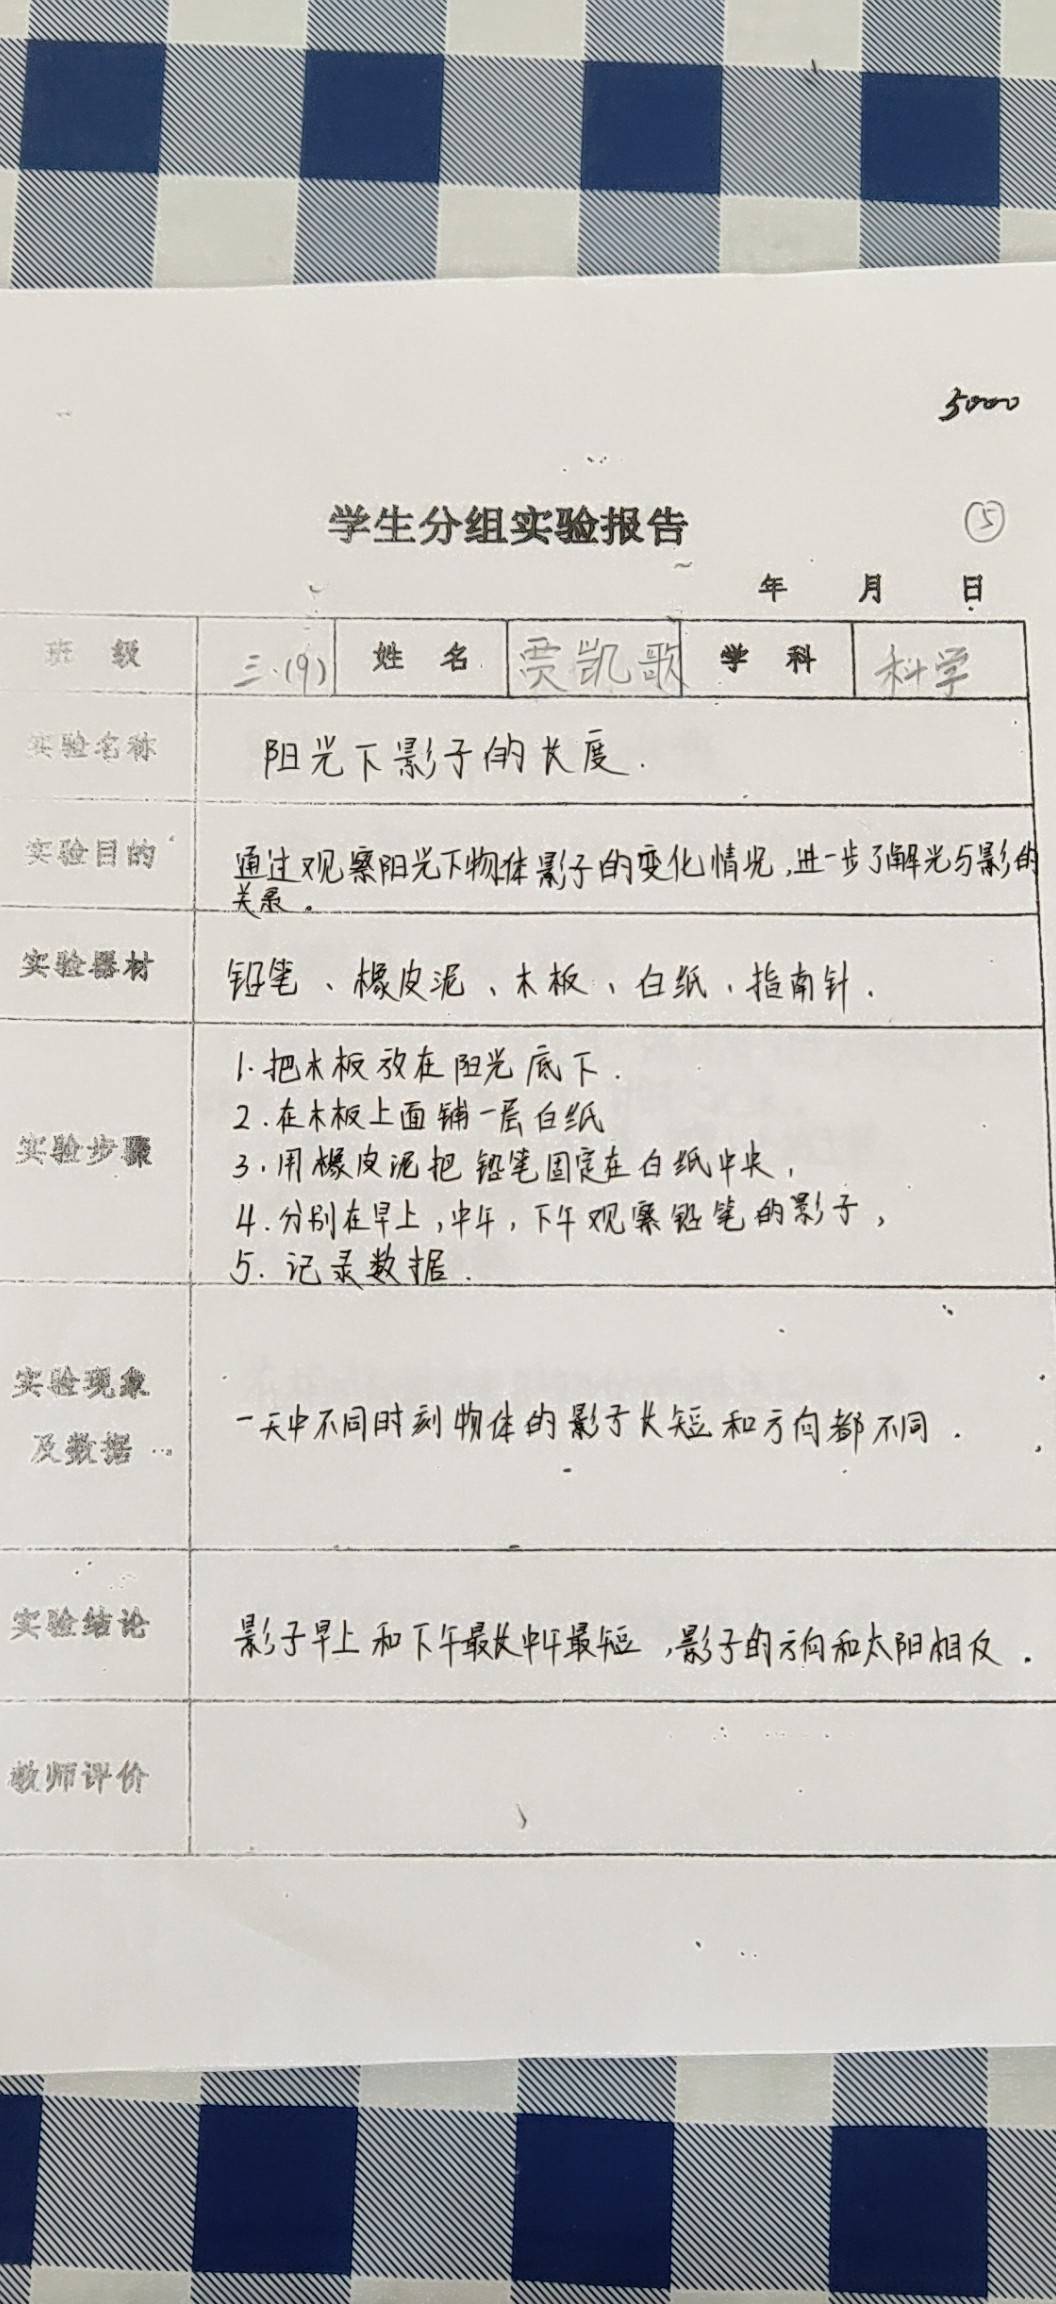 5000
学生分组实验报告 ⑤
年 月 日
班 级 三.(9) 姓 名 贾凯歌 学 科 科学
实验名称 阳光下影子的长度.
实验目的 通过观察阳光下物体影子的变化情况,进一步了解光与影的
关系。
实验器材 铅笔、橡皮泥、木板、白纸、指南针.
实验步骤
1.把木板放在阳光底下.
2.在木板上面铺一层白纸
3.用橡皮泥把铅笔固定在白纸中央,
4.分别在早上,中午,下午观察铅笔的影子,
5.记录数据.
实验现象
及数据 一天中不同时刻物体的影子长短和方向都不同.
实验结论 影子早上和下午最长中午最短,影子的方向和太阳相反.
教师评价